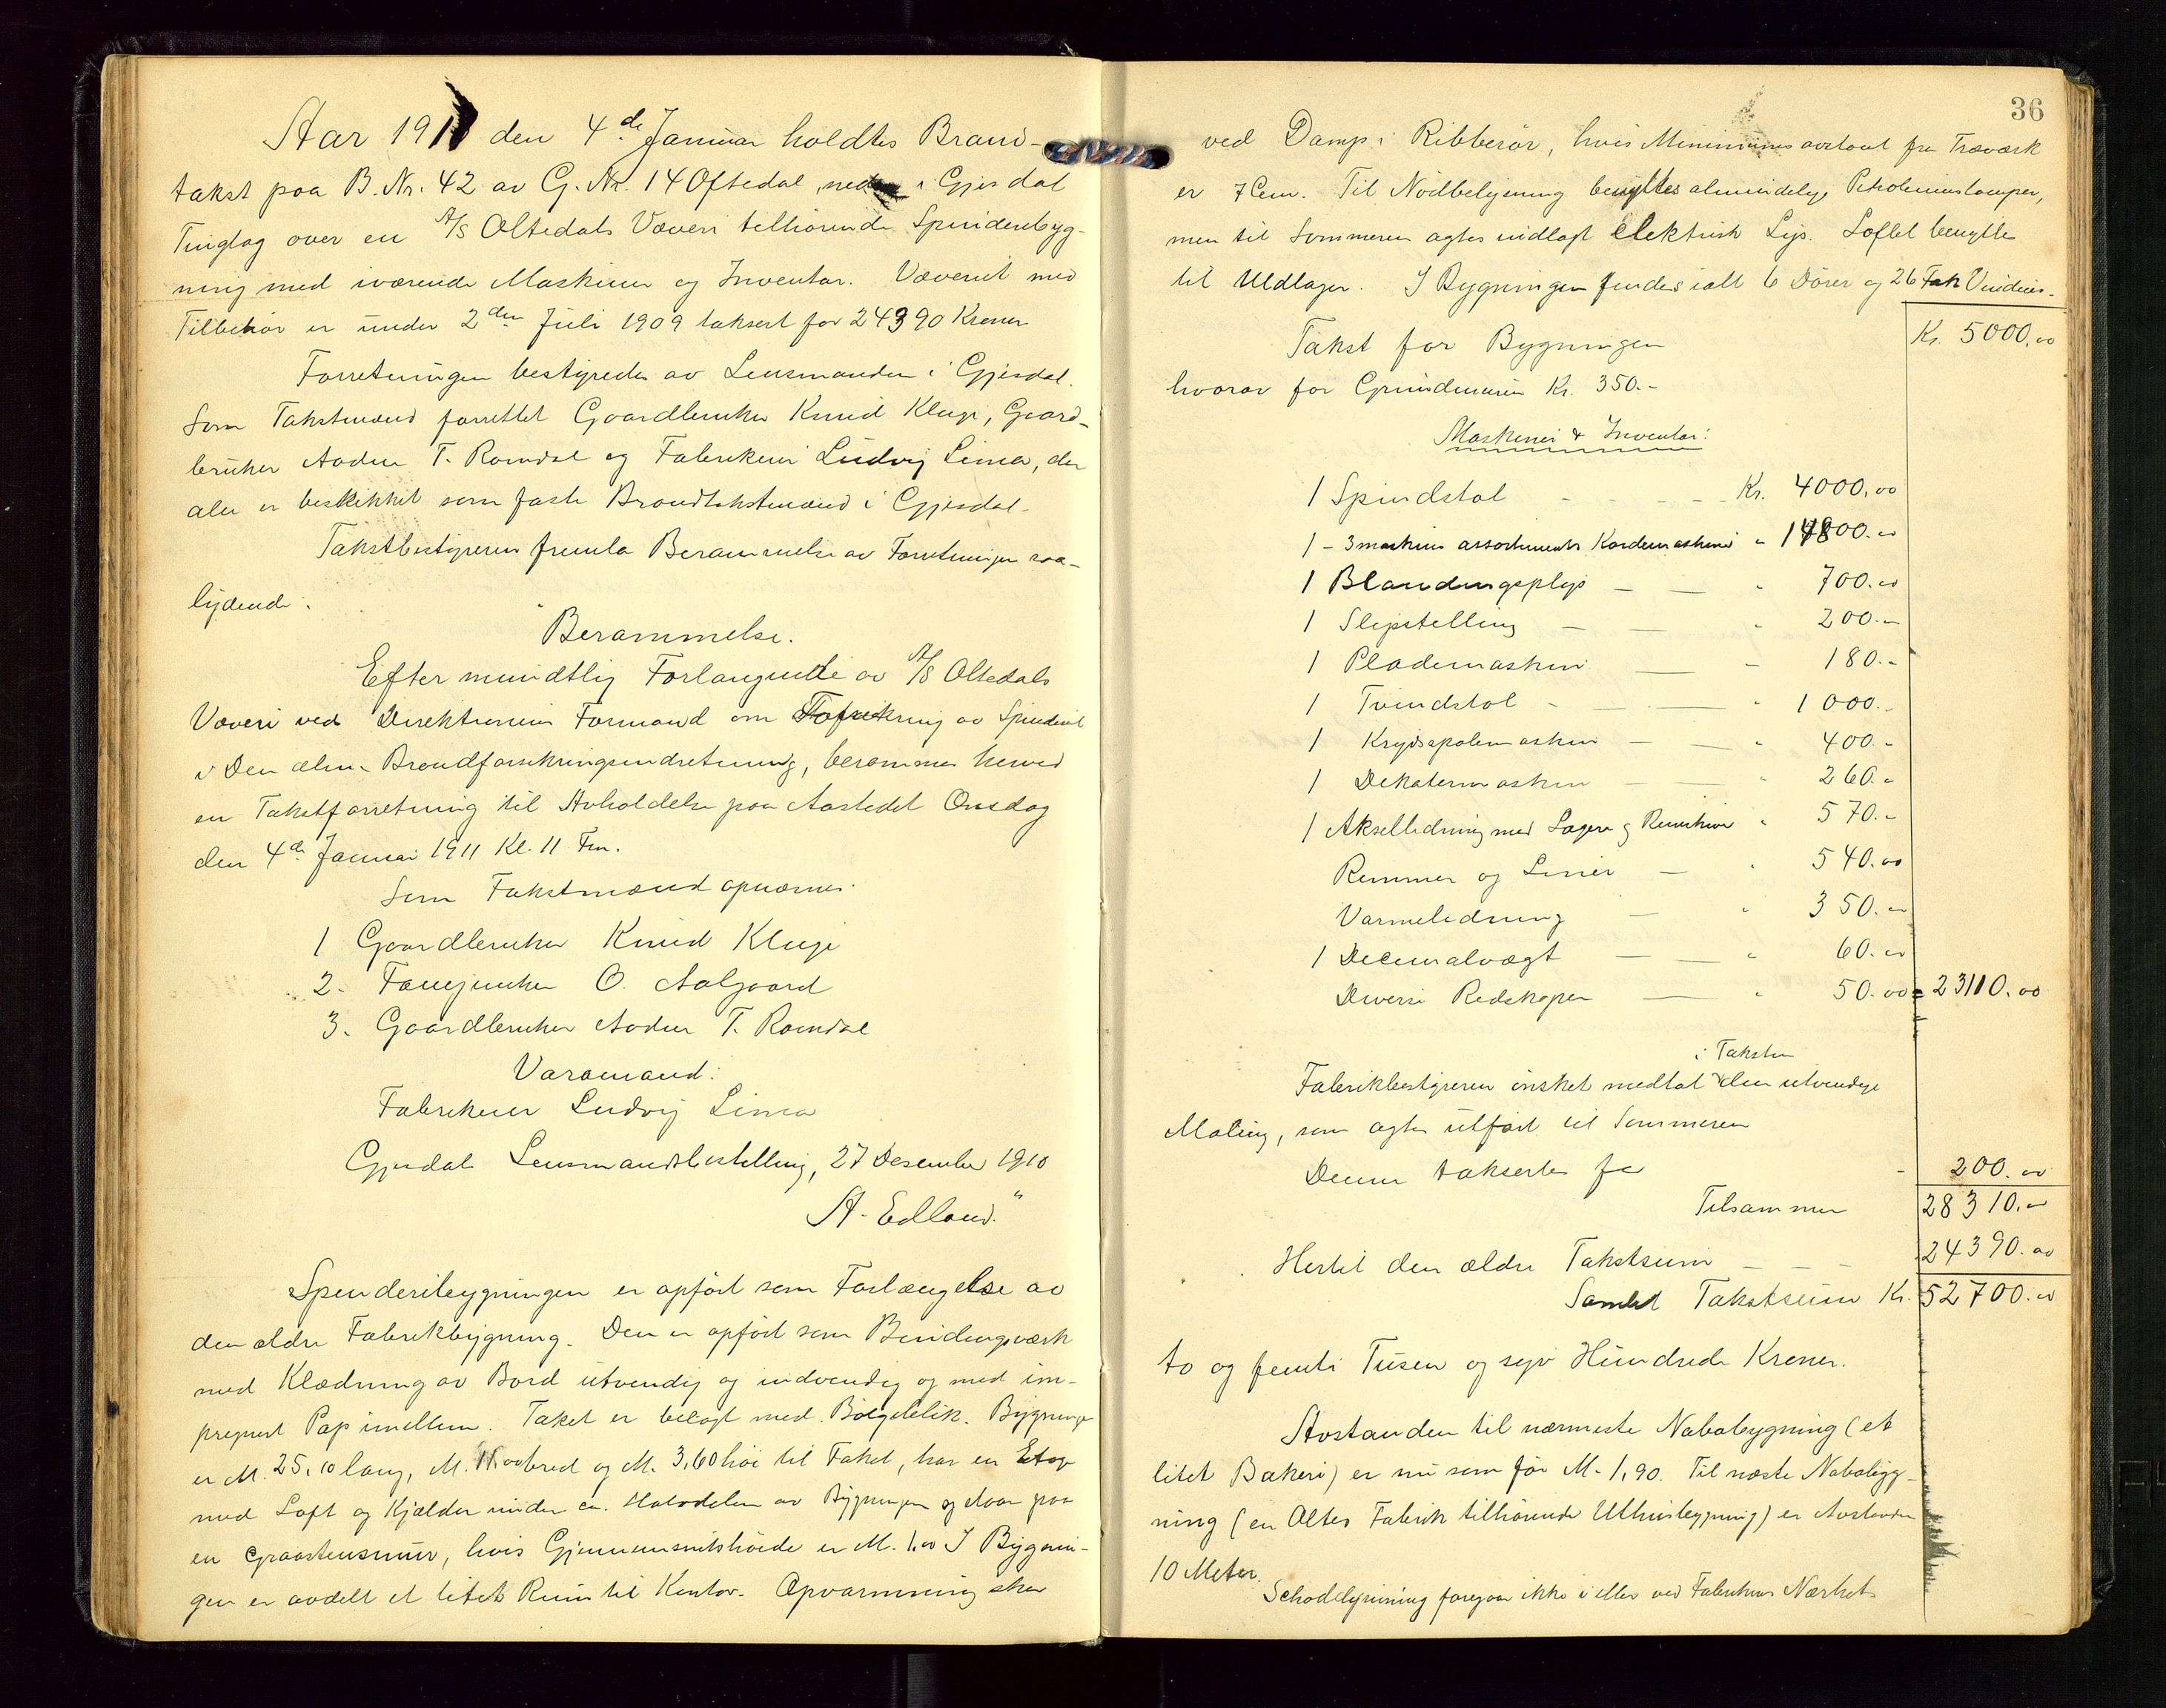 Aar 1911 den 4de Januar holdtes Brand-
takst paa B. Nr. 42 av G. Nr. 14 Oftedal i Gjesdal
Tinglag over en A/S Oltedals Væveri tilhörende Spinderibyg-
ning med iværende Maskiner og Inventar. Væveriet med
Tilbehör er under 2den Juli 1909 taksert for 24390 Kroner
Forretningen bestyredes av Lensmanden i Gjesdal.
Som Takstmænd forrettet Gaardbruker Knud Kluge, Gaard-
bruker Aadne T. Ramdal og Fabrikeier Ludvig Lima, der
alle er beskikket som faste Brandtakstmænd i Gjesdal.
Takstbestyreren fremla Berammelse av Forretningen saa-
lydende:
"Berammelse.
Efter mundtlig Forlangende av A/S Oltedals
Væveri ved Direktionens Formand om av Spinderiet
i Den alm. Brandforsikringsindretning, berammes herved
en Takstforretning til Avholdelse paa Aastedet Onsdag
den 4de Januar 1911 Kl. 11 Fm.
Som Takstmænd opnævnes:
1 Gaardbruker Knud Kluge
2. Fanejunker O. Aalgaard
3. Gaardbruker Aadne T. Ramdal
Varamand:
Fabrikeier Ludvig Lima
Gjesdal Lensmandsbestilling, 27 Desember 1910
A. Edland."
Spinderibygningen er opfört som Forlængelse av
den ældre Fabrikbygning. Den er opfört som Bindingsværk
med Klædning av Bord utvendig og indvendig og med im-
pregnert Pap imellem. Taket er belagt med Bölgeblik. Bygningen
er M. 25,10 lang, M. 11,00 bred og M. 3,60 höi til Taket, har en Etage
med Loft og Kjælder under ca. Halvdelen av Bygningen og staar paa
en Graastensmur, hvis Gjennemsnitshöide er M. 1,00 I Bygnin-
gen er avdelt et litet Rum til Kontor. Opvarmning sker
36
ved Damp i Ribberör, hvis Minimumsavstand fra Træværk
er 7 Cem. Til Nödbelysning benyttes almindelige Petroleumslamper,
men til Sommeren agtes indlagt elektrisk Lys. Loftet benyttes
til Uldlager. I Bygningen findes ialt 6 Dörer og 26 Fak Vinduer.
Takst for Bygningen Kr. 5000,00
hvorav for Grundmuren Kr. 350.-
Maskiner & Inventar:
1 Spindstol - - - - Kr. 4000,00
1 - 3 maskins assortiments Kardemaskine " 14800.00
1 Blandingsplys — — " 700.00
1 Slipstelling — — " 200.-
1 Plademaskin — — 180.-
1 Tvindstol - — — " 1000.-
1 Krydsspolemaskin — — " 400.-
1 Dekatermaskin — — " 260.-
1 Akselledning med Lagere og Remskiver " 570.-
Remmer og Liner — " 540.00
Varmeledning — " 350.-
1 Decimalvægt — — " 60.00
Diverse Redskaper — " 50.00 = 23110.00
i Taksten
Fabrikbestyreren önsket medtat den utvendige
Maling, som agtes utfört til Sommeren
Denne taksertes for - 200.00
Tilsammen 28310.-
Hertil den ældre Takstsum — — — 24390.00
Samlet Takstsum Kr. 52700.00
to og femti Tusen og syv Hundrede Kroner.
Avstanden til nærmeste Nabobygning (et
litet Bakeri) er nu som för M. 1,90. Til næste Nabobygg-
ning (en Altes Fabrik tilhörende Uthusbygning) er Avstanden
10 Meter.
Schoddylynning foregaar ikke i eller ved Fabrikens Nærhet.